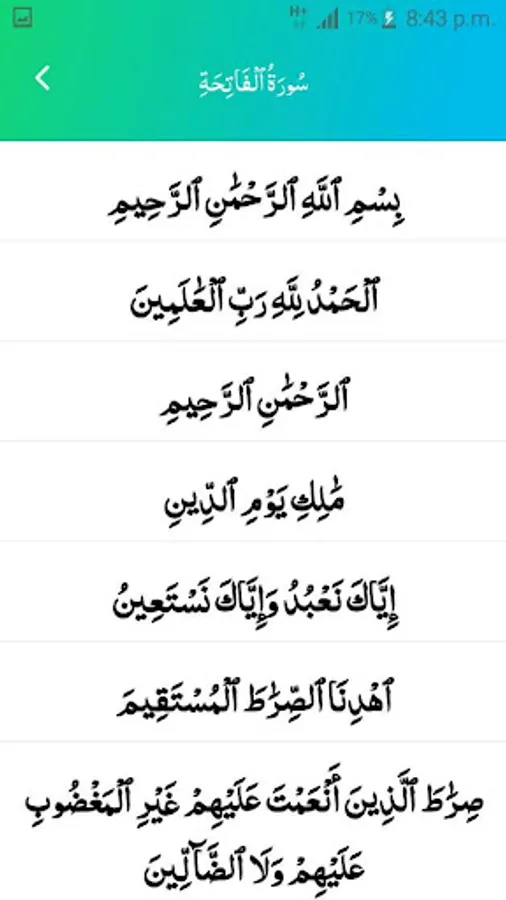 H+ 17% 8:43 p.m.
سُورَةُ ٱلْفَاتِحَةِ
بِسْمِ ٱللَّهِ ٱلرَّحْمَٰنِ ٱلرَّحِيمِ
ٱلْحَمْدُ لِلَّهِ رَبِّ ٱلْعَٰلَمِينَ
ٱلرَّحْمَٰنِ ٱلرَّحِيمِ
مَٰلِكِ يَوْمِ ٱلدِّينِ
إِيَّاكَ نَعْبُدُ وَإِيَّاكَ نَسْتَعِينُ
ٱهْدِنَا ٱلصِّرَٰطَ ٱلْمُسْتَقِيمَ
صِرَٰطَ ٱلَّذِينَ أَنْعَمْتَ عَلَيْهِمْ غَيْرِ ٱلْمَغْضُوبِ
عَلَيْهِمْ وَلَا ٱلضَّآلِّينَ